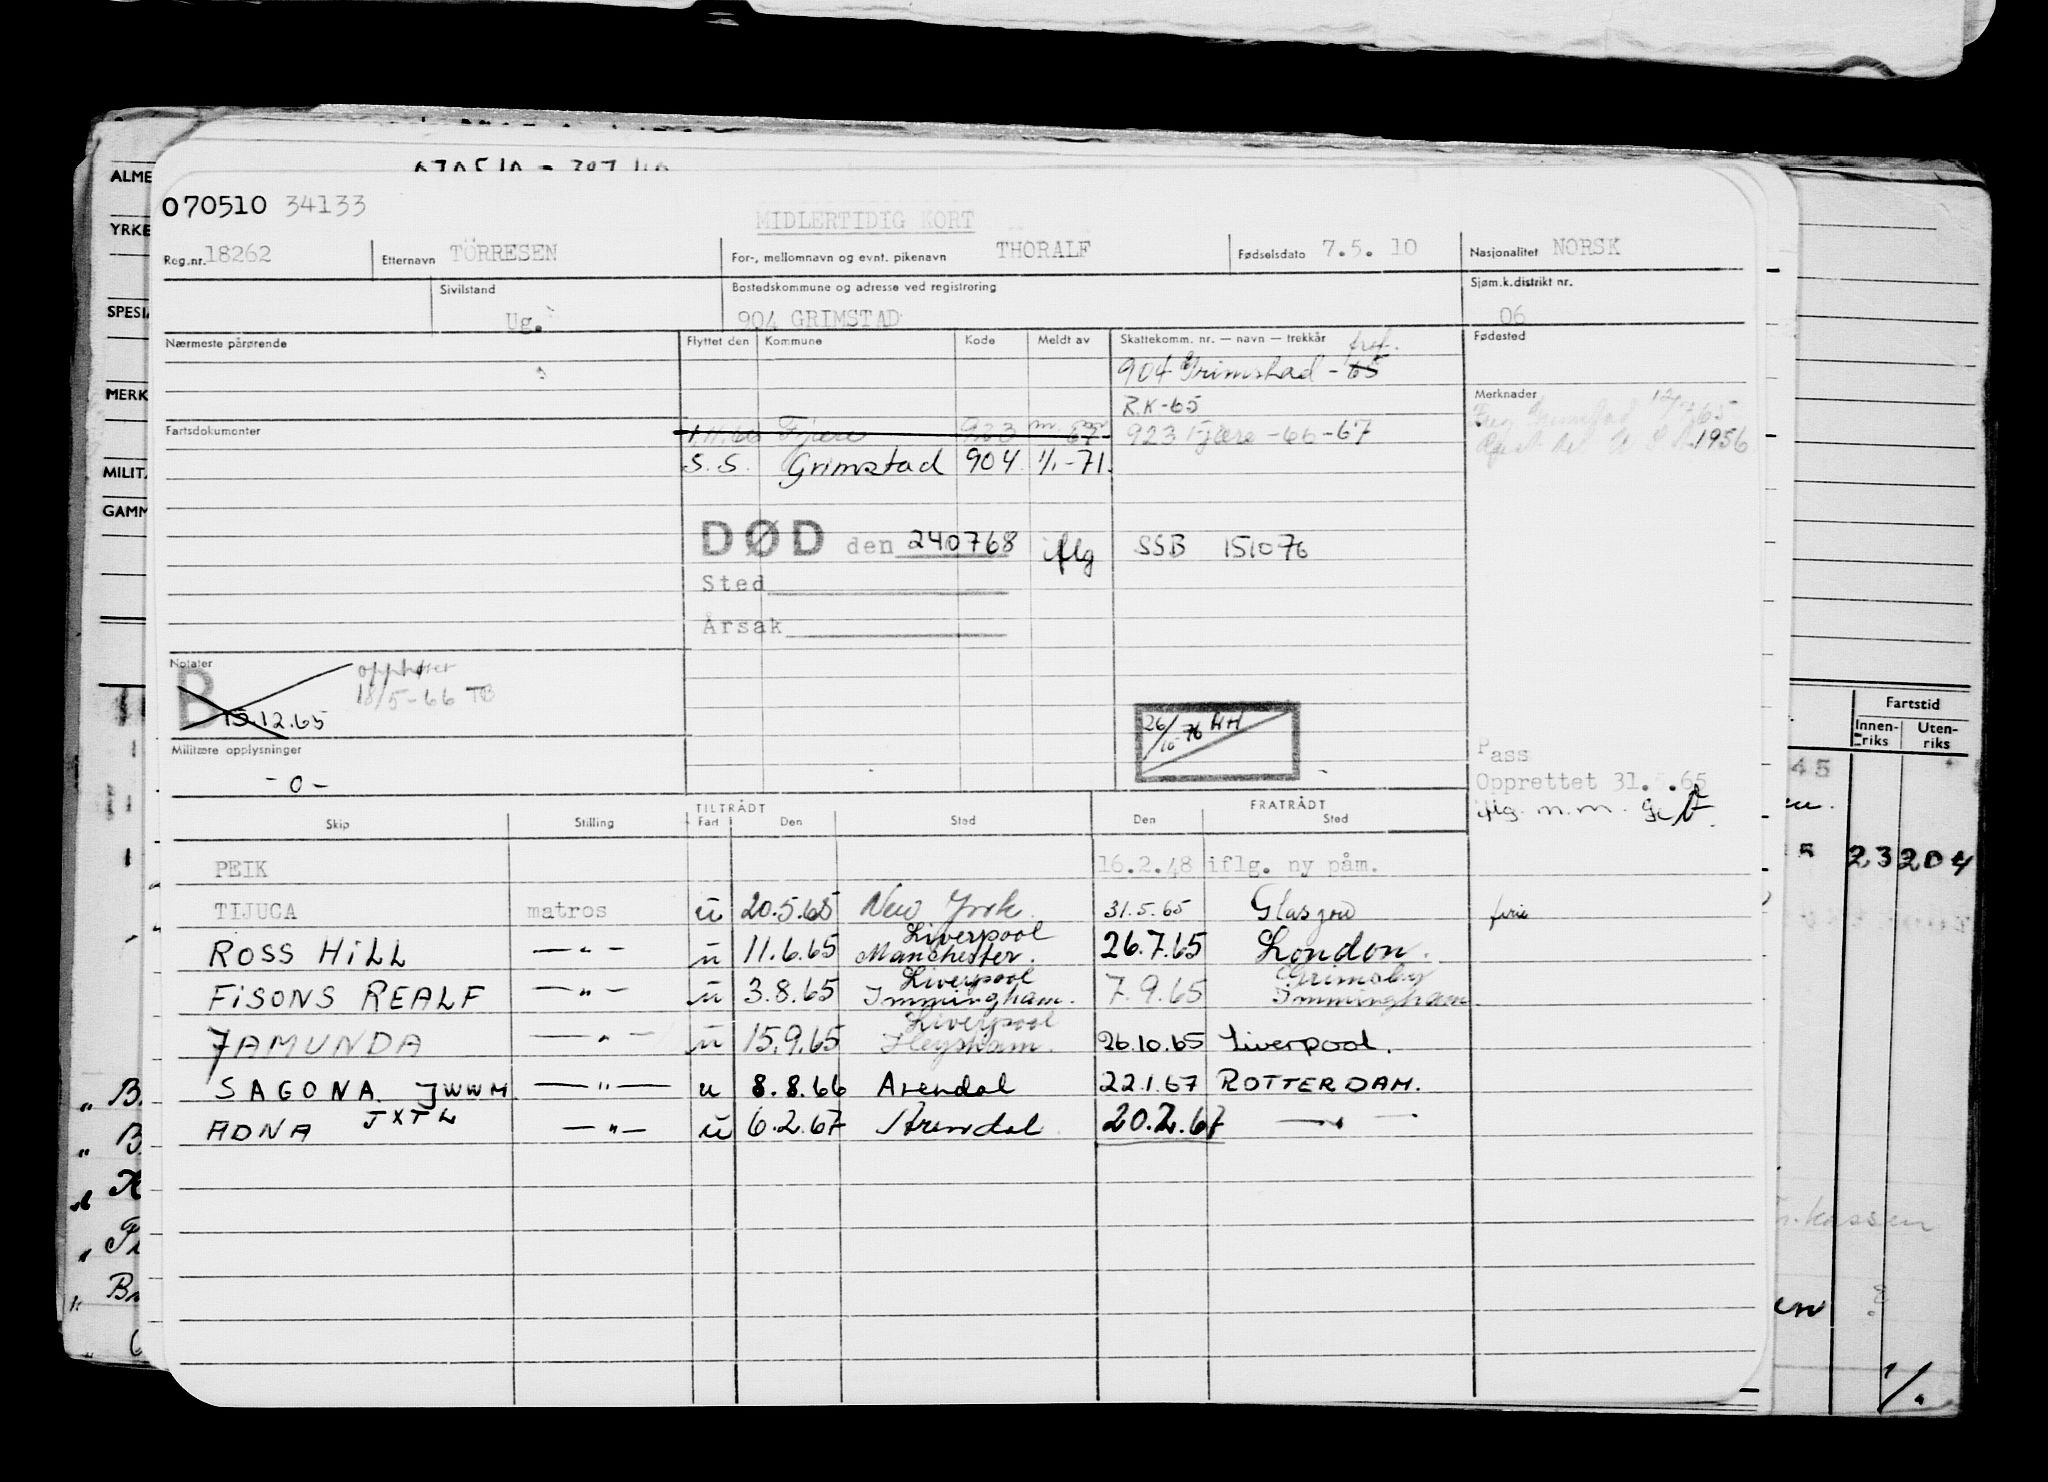 070510 34133
MIDLERTIDIG KORT
Reg.nr. 18262 Etternavn TÖRRESEN For-, mellomnavn og evnt. pikenavn THORALF Fødselsdato 7.5. 10 Nasjonalitet NORSK
Sivilstand Ug. Bostedskommune og adresse ved registrering 904 GRIMSTAD Sjøm.k.distrikt nr. 06
Nærmeste pårørende Flyttet den Kommune Kode Meldt av Skattekomm. nr. — navn — trekkår Fødested
904 Grimstad - 65
R.K-65
Merknader
Fartsdokumenter 1.11.66 Fjære 923 923 Fjære -66-67
1956
S.S. Grimstad 904 1/1-71.
DØD den 240768 iflg SSB 151076
Sted
Årsak
Notater
B 15.12.65 opphører
18/5-66 TB
26/10-76 HH
Militære opplysninger
-0-
Pass
Opprettet 31.5.65
iflg. m.m.
TILTRÅDT FRATRÅDT
Skip Stilling Fart Den Sted Den Sted
PEIK 16.2.48 iflg. ny påm.
TIJUCA matros u 20.5.65 New York 31.5.65 Glasgow ferie
ROSS HILL —"— u 11.6.65 Liverpool Manchester. 26.7.65 London.
FISONS REALF —"— u 3.8.65 Liverpool Immingham. 7.9.65 Grimsby Immingham.
JAMUNDA —"— u 15.9.65 Liverpool Heysham. 26.10.65 Liverpool.
SAGONA JWWM —"— u 8.8.66 Arendal 22.1.67 ROTTERDAM.
ADNA JXTL —"— u 6.2.67 Arendal 20.2.67 —"—
ALME
YRKE
SPESIA
MERK
MILITÆ
GAMM
Fartstid
Innenriks Utenriks
45
5 23 204